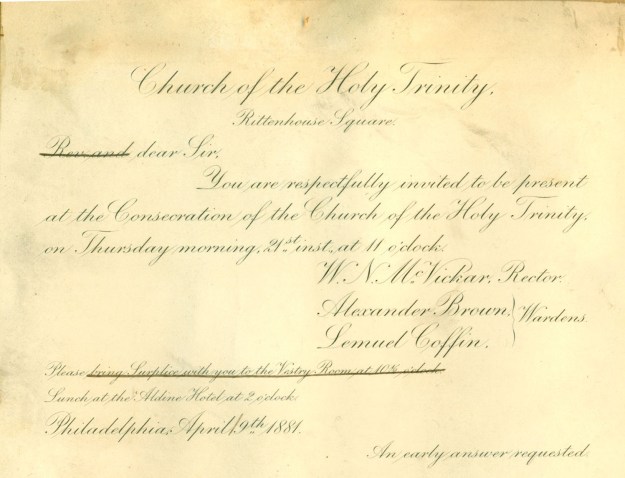 Church of the Holy Trinity,
Rittenhouse Square.
Rev. and dear Sir,
You are respectfully invited to be present
at the Consecration of the Church of the Holy Trinity,
on Thursday morning, 21st inst., at 11 o'clock.
W. N. McVickar, Rector.
Alexander Brown,
Lemuel Coffin.
Wardens.
Please bring Surplice with you to the Vestry Room, at 10½ o'clock.
Lunch at the Aldine Hotel at 2 o'clock.
Philadelphia, April 9th 1881.
An early answer requested.